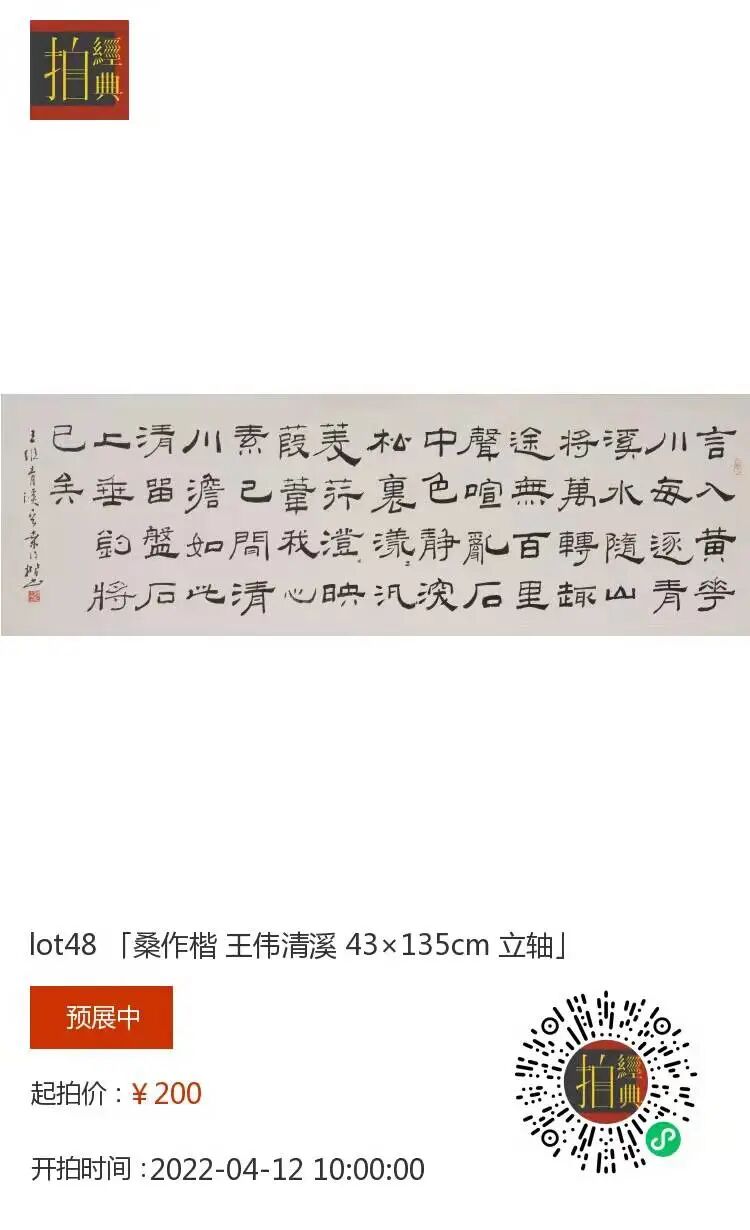 拍經典
言入黄花
川每逐青
溪水隨山
將萬轉趣
途無百里
聲喧亂石
中色静深
松裏漾汎
菱荇澄映
葭葦我心
素已閒清
川澹如此
清留盤石
上垂釣將
已矣
王維青溪 桑作楷
lot48 「桑作楷 王伟清溪 43×135cm 立轴」
预展中
起拍价：¥200
开拍时间：2022-04-12 10:00:00
拍經典